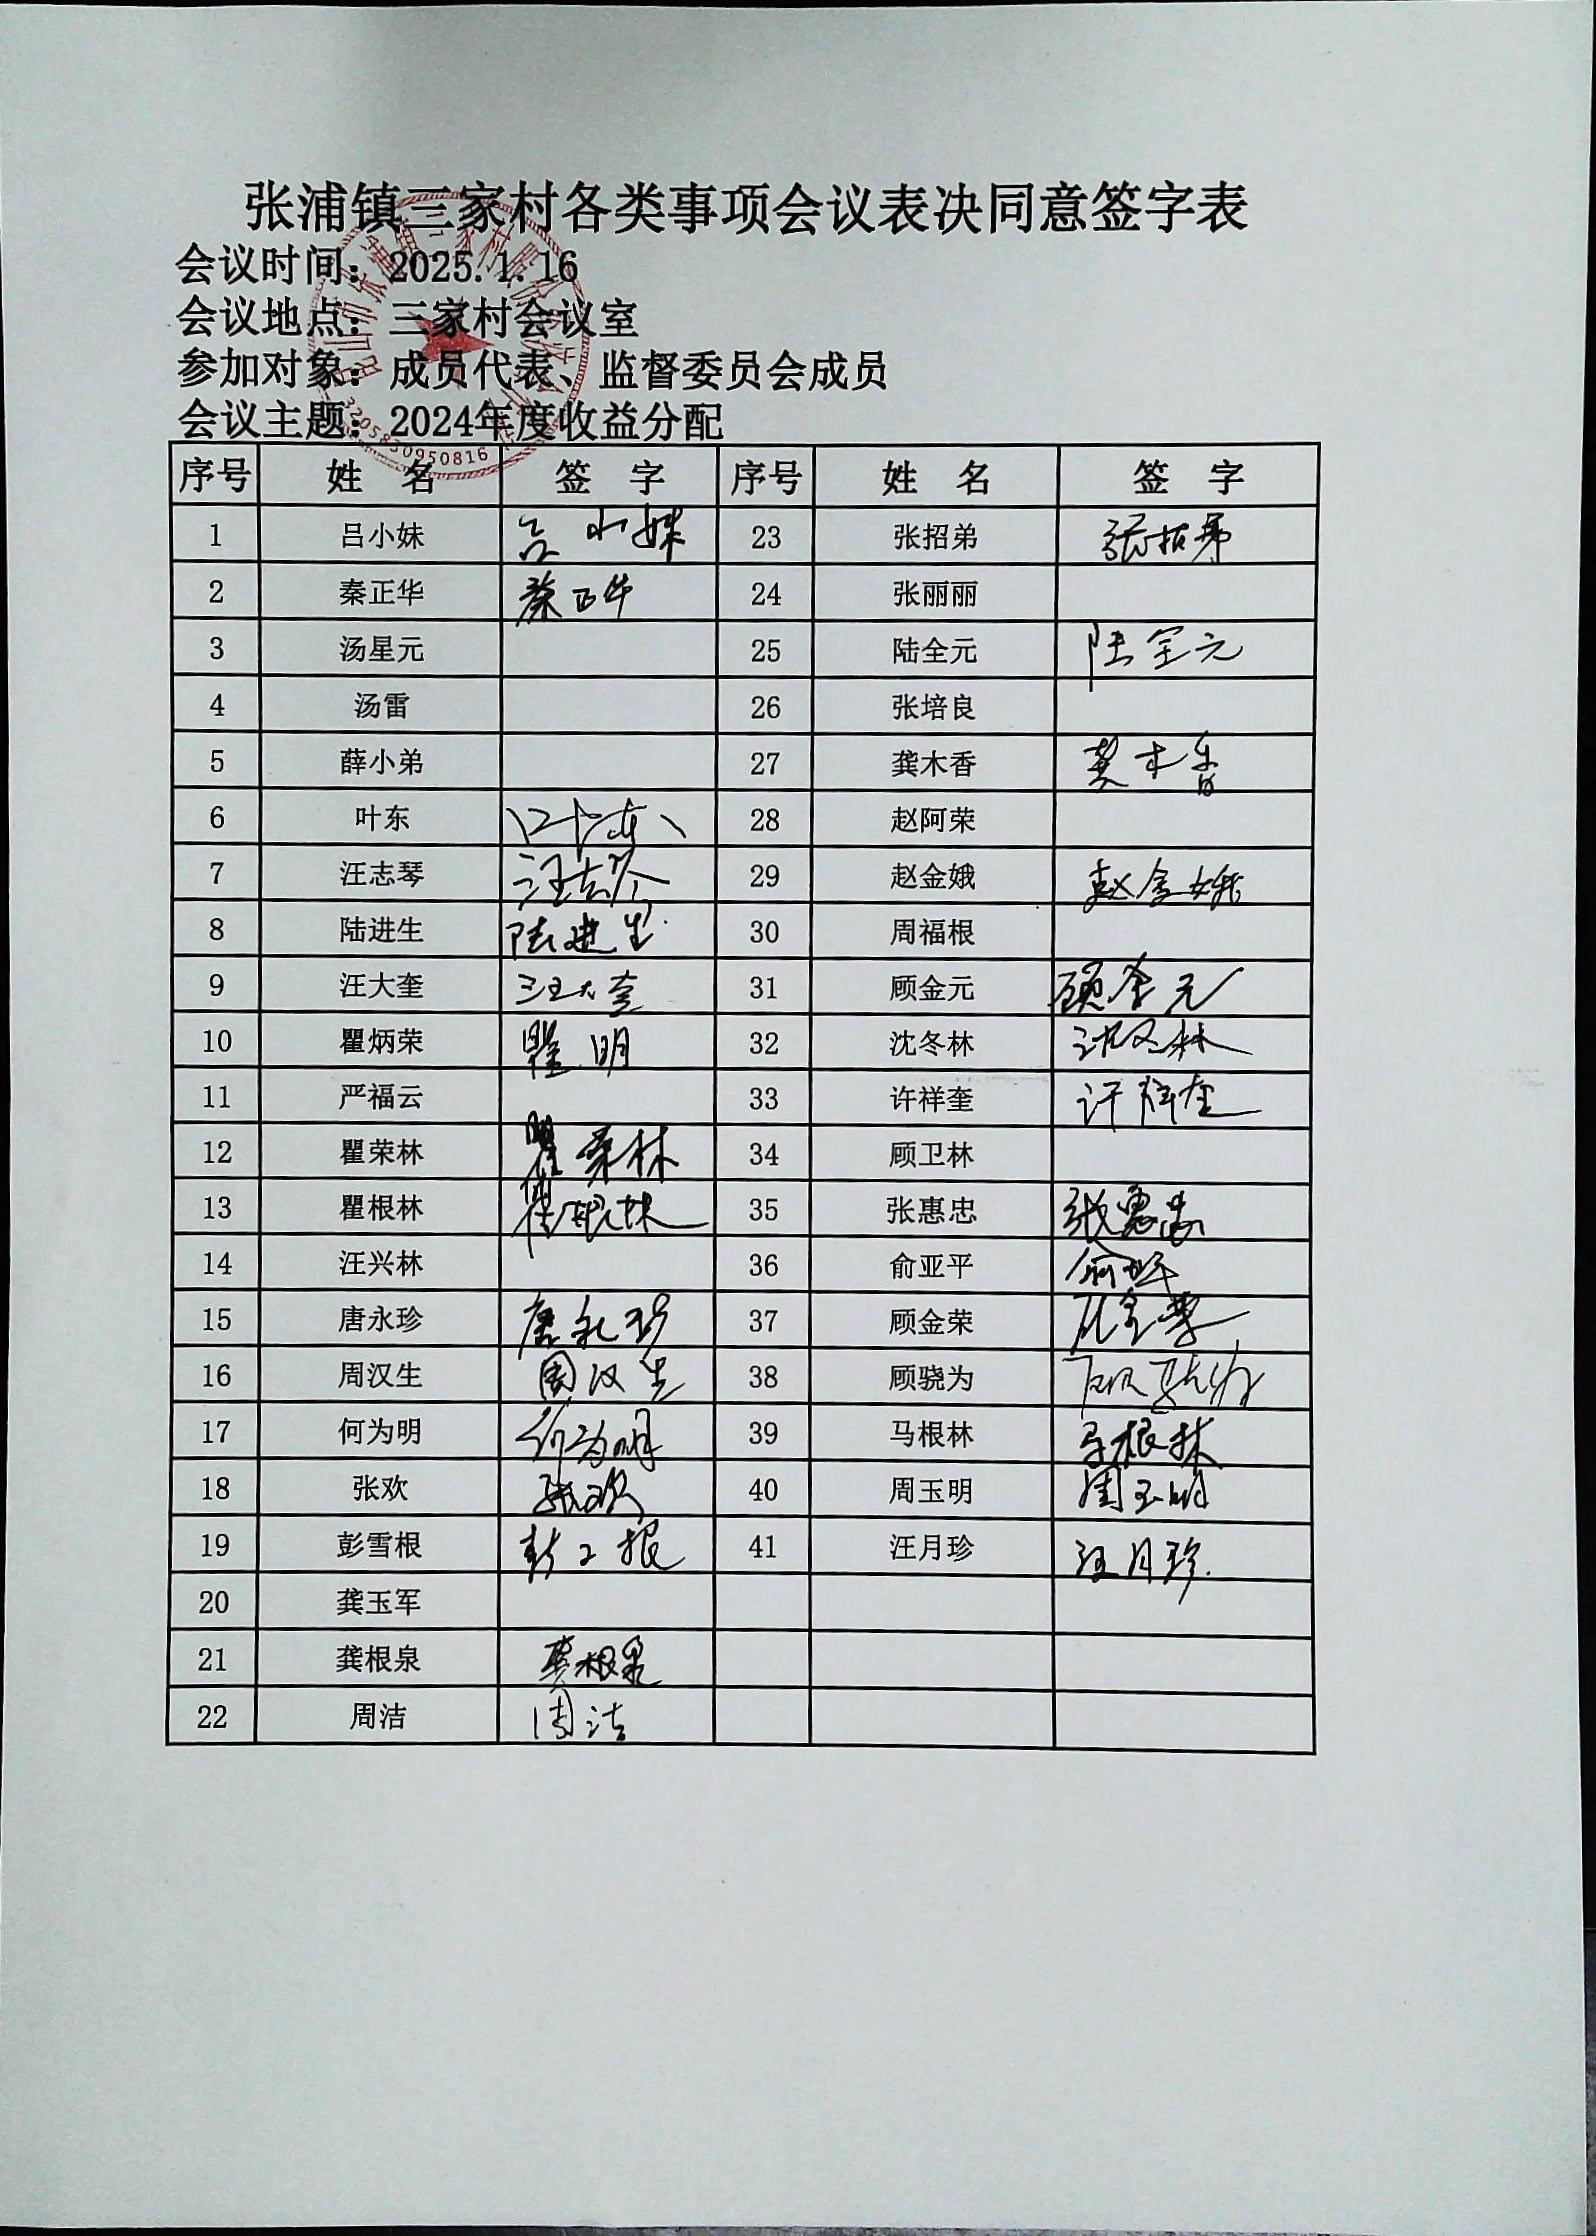 张浦镇三家村各类事项会议表决同意签字表
会议时间：2025.1.16
会议地点：三家村会议室
参加对象：成员代表、监督委员会成员
会议主题：2024年度收益分配
3205830950816
序号 姓 名 签 字 序号 姓 名 签 字
1 吕小妹 吕小妹 23 张招弟 张招弟
2 秦正华 秦正华 24 张丽丽
3 汤星元 25 陆全元 陆全元
4 汤雷 26 张培良
5 薛小弟 27 龚木香 龚木香
6 叶东 叶东 28 赵阿荣
7 汪志琴 汪志琴 29 赵金娥 赵金娥
8 陆进生 陆进生 30 周福根
9 汪大奎 汪大奎 31 顾金元 顾金元
10 瞿炳荣 瞿明 32 沈冬林 沈冬林
11 严福云 33 许祥奎 许祥奎
12 瞿荣林 瞿荣林 34 顾卫林
13 瞿根林 瞿根林 35 张惠忠 张惠忠
14 汪兴林 36 俞亚平 俞亚平
15 唐永珍 唐永珍 37 顾金荣 顾金荣
16 周汉生 周汉生 38 顾骁为 顾骁为
17 何为明 何为明 39 马根林 马根林
18 张欢 张欢 40 周玉明 周玉明
19 彭雪根 41 汪月珍 汪月珍
20 龚玉军
21 龚根泉 龚根泉
22 周洁 周洁